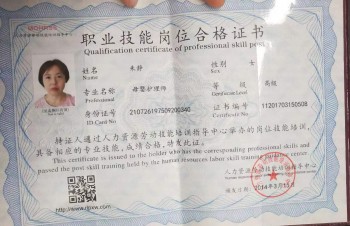 职业技能岗位合格证书
Qualification certificate of professional skill post
姓名 朱静 性别 女
专业名称 母婴护理师 等级 高级
Professional Certificate Level
身份证号 210726197509200340 证书编号 11201703150508
ID Card No Certificate No
持证人通过人力资源劳动技能培训指导中心举办的岗位技能培训,
具备相应的专业技能,成绩合格,特发此证。
This certificate is issued to the holder who has the corresponding professional skills and
passed the post skill training held by the human resources labor skill training and
人力资源劳动技能培训指导中心
颁发日期